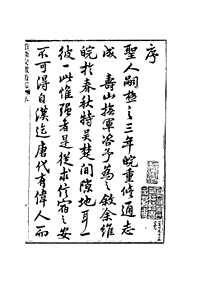 序
聖人嗣極之三年皖重修通志
成 壽山撫軍咨予為之敘余維
皖於春秋特吳楚間隙地耳一
彼一此惟強者是從求信宿之安
不可得自漢迄唐代有偉人而